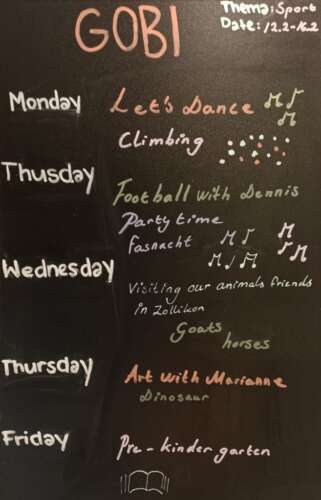 GOBI
Thema: Sport
Date: 12.2-16.2
Monday Let's Dance
Climbing
Thusday
Football with Dennis
Party time
fasnacht
Wednesday
Visiting our animals friends
in Zollikon
Goats
horses
Thursday Art with Marianne
Dinosaur
Friday Pre-kindergarten